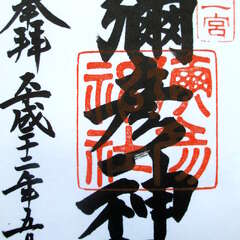 一宮
彌彦神
彌彦
神社
奉拝
平成十二年五月